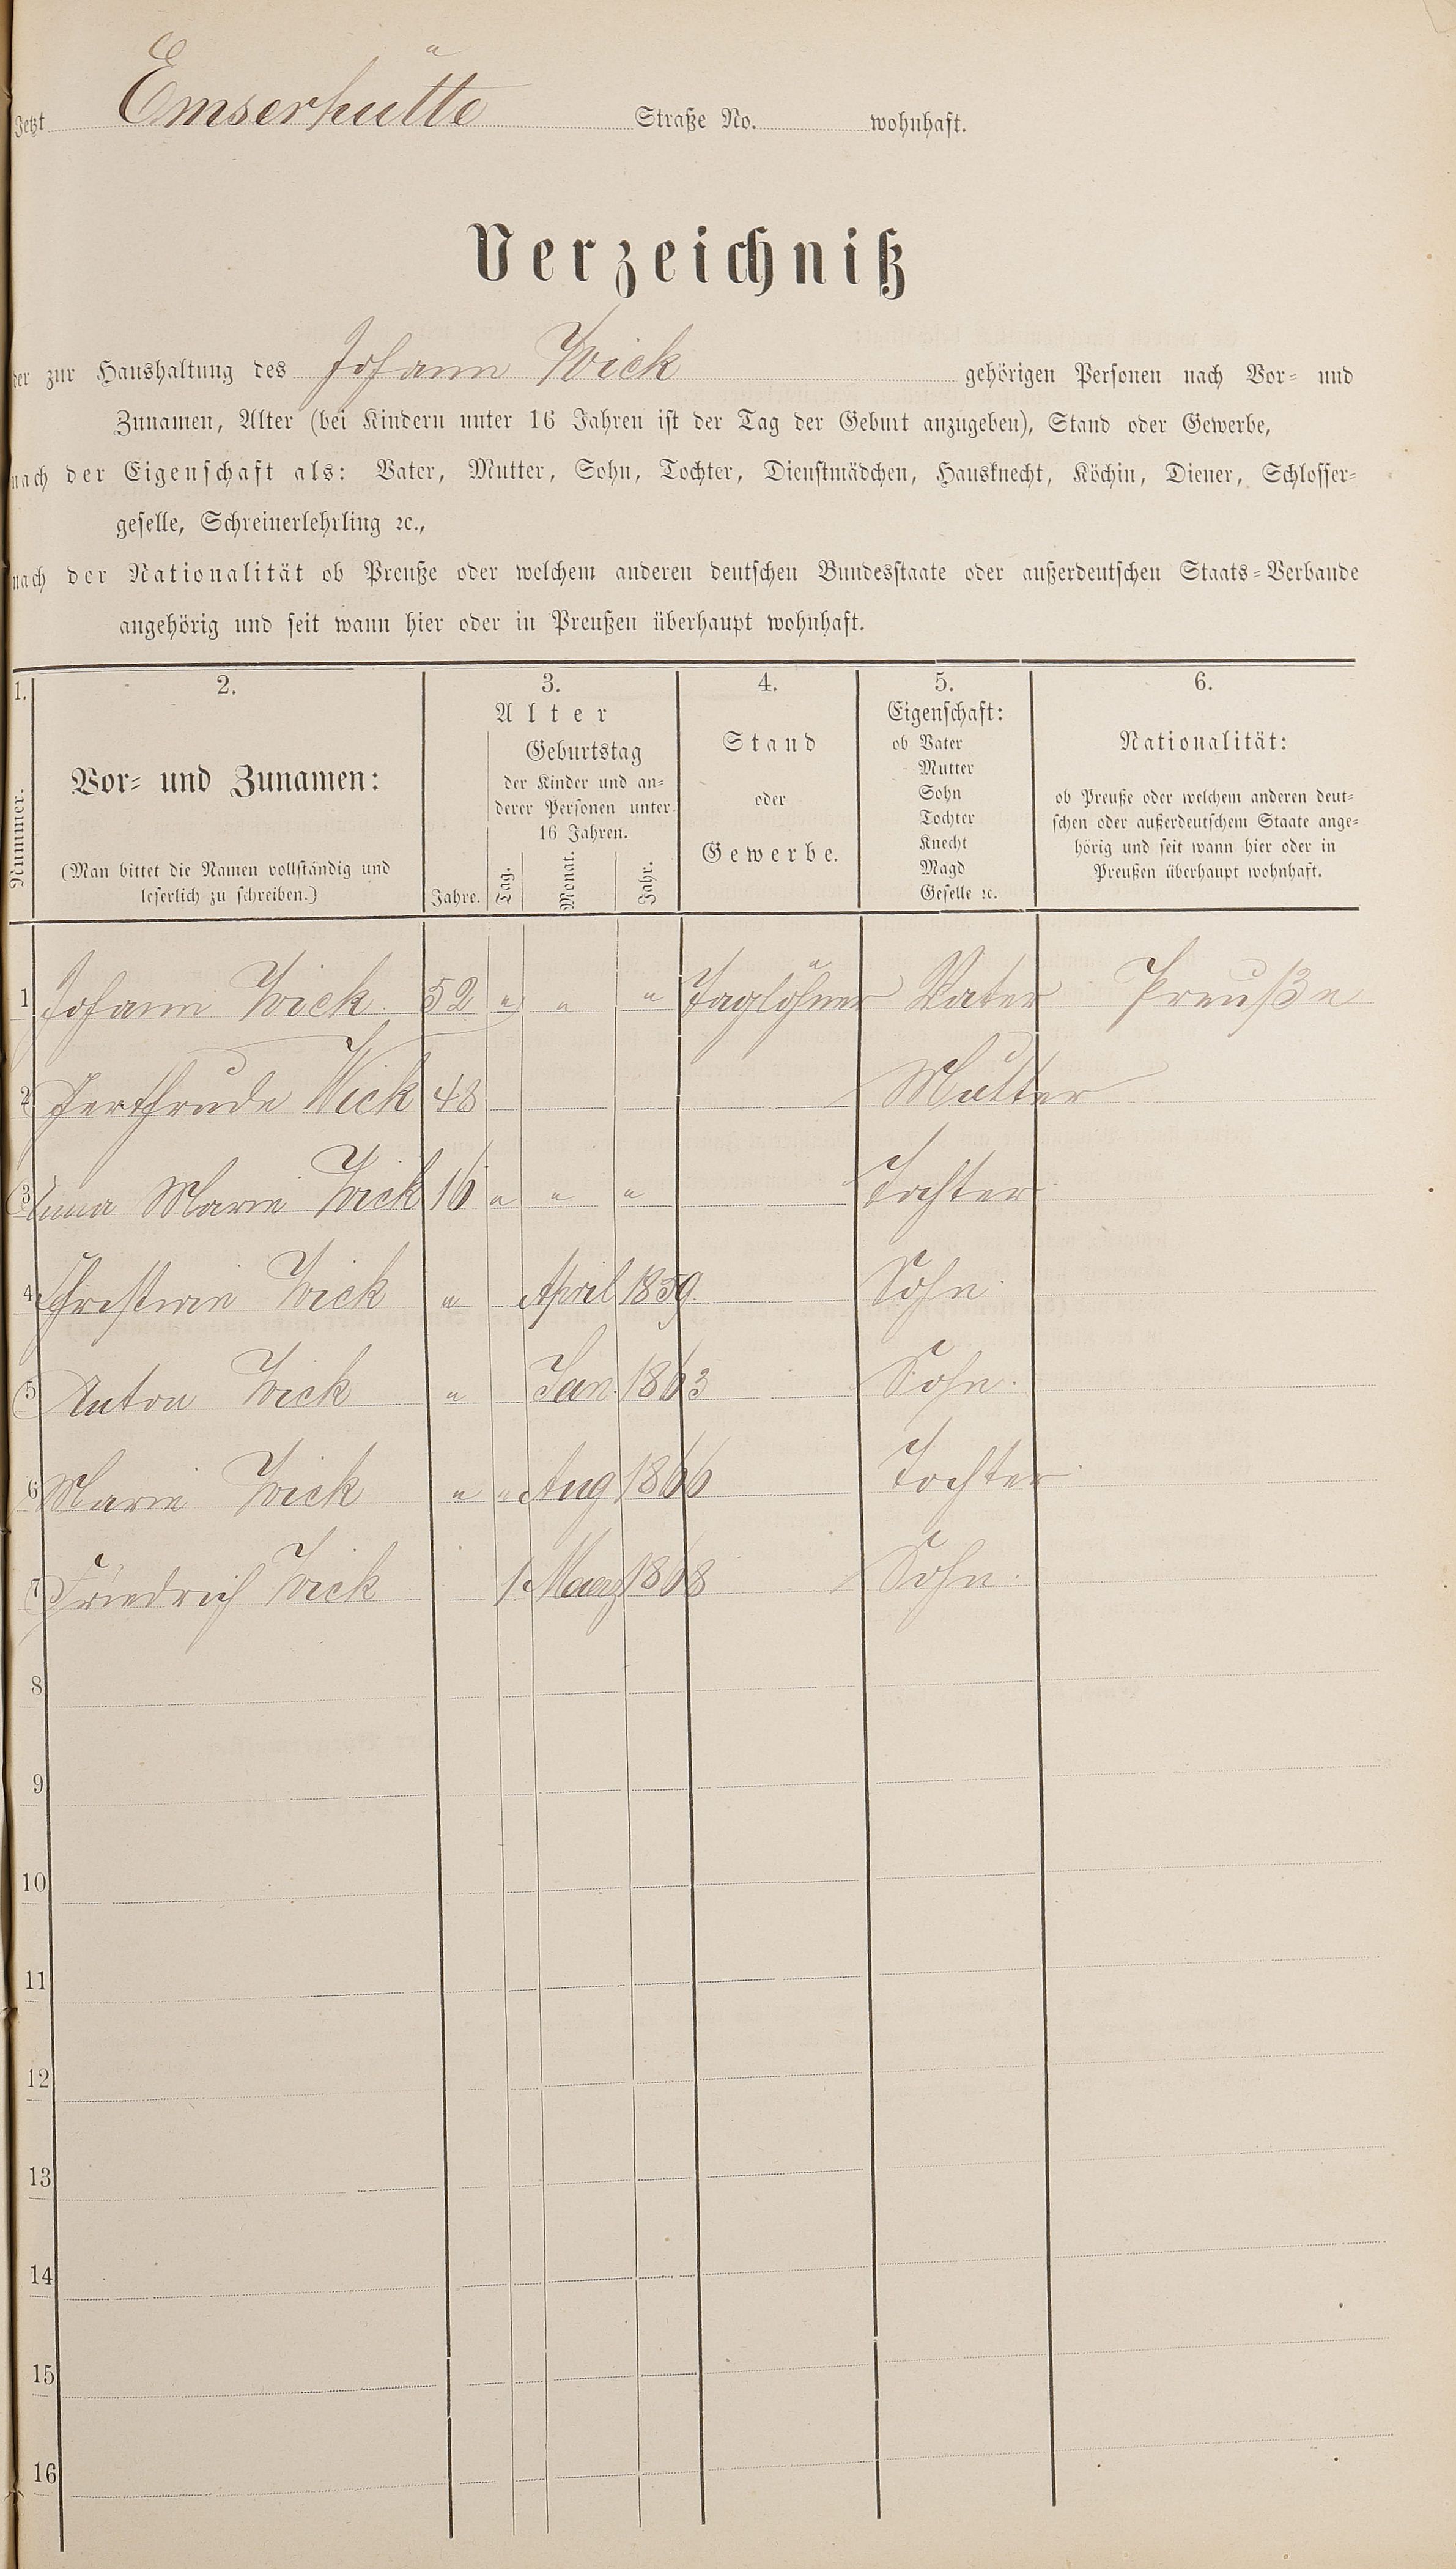 Jetzt Emserhütte Straße No. wohnhaft.
Verzeichniß
der zur Haushaltung des Johann Wick gehörigen Personen nach Vor- und
Zunamen, Alter (bei Kindern unter 16 Jahren ist der Tag der Geburt anzugeben), Stand oder Gewerbe,
nach der Eigenschaft als: Vater, Mutter, Sohn, Tochter, Dienstmädchen, Hausknecht, Köchin, Diener, Schlosser-
geselle, Schreinerlehrling ꝛc.,
nach der Nationalität ob Preuße oder welchem anderen deutschen Bundesstaate oder außerdeutschen Staats-Verbande
angehörig und seit wann hier oder in Preußen überhaupt wohnhaft.
1. 2. 3. 4. 5. 6.
Nummer.
Vor- und Zunamen:
(Man bittet die Namen vollständig und
leserlich zu schreiben.)
Alter
Jahre.
Geburtstag
der Kinder und an-
derer Personen unter
16 Jahren.
Tag. Monat. Jahr.
Stand
oder
Gewerbe.
Eigenschaft:
ob Vater
Mutter
Sohn
Tochter
Knecht
Magd
Geselle ꝛc.
Nationalität:
ob Preuße oder welchem anderen deut-
schen oder außerdeutschem Staate ange-
hörig und seit wann hier oder in
Preußen überhaupt wohnhaft.
1 Johann Wick 52 " " " Taglöhner Vater Preuße
2 Gerthrude Wick 48 Mutter
3 Anna Marie Wick 16 " " " Tochter
4 Christian Wick " April 1859 Sohn
5 Anton Wick " Jan. 1863 Sohn.
6 Marie Wick " " Aug 1866 Tochter
7 Friedrich Wick 1. Maerz 1868 Sohn.
8
9
10
11
12
13
14
15
16